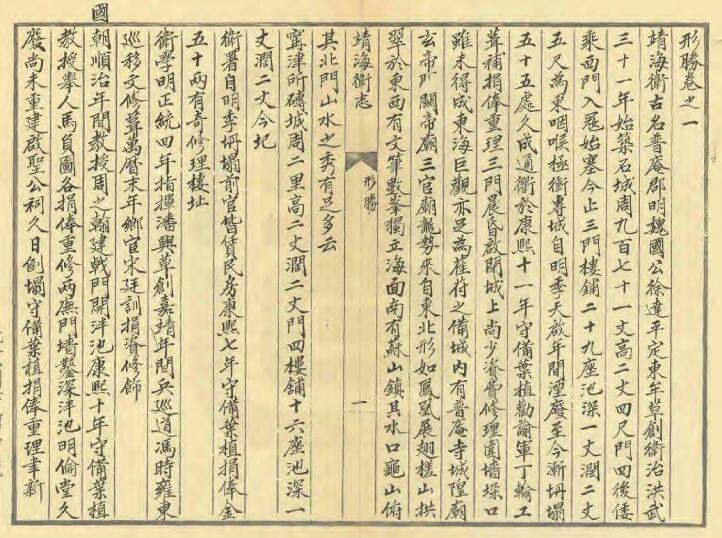 形勝卷之一
靖海衛古名普庵郡明魏國公徐達平定東牟草創衛治洪武
三十一年始築石城周九百七十一丈高二丈四尺門四後倭
乘西門入冦始塞今止三門樓鋪二十九座池深一丈濶二丈
五尺為東咽喉極衝專城自明季天啟年間湮廢至今漸坍塌
五十五處久成通衢於康熙十一年守備葉植勸諭軍丁輸工
葺補捐俸重理三門晨昏啟閉城上尚少資費修理圍墻垛口
雖未得成東海巨觀亦足為萑苻之備城內有普庵寺城隍廟
玄帝庙關帝廟三官廟龍勢來自東北形如鳳凰展翅槎山拱
翠於東西有文筆數峯獨立海面南有蘇山鎮其水口龜山俯
靖海衛志
形勝
一
其北門山水之秀有足多云
甯津所磚城周二里高二丈濶二丈門四樓舖十六座池深一
丈濶二丈今圮
衛署自明季坍塌前官皆賃民房康熙七年守備葉植捐俸金
五十兩有奇修理樓址
衛學明正統四年指揮潘興草創嘉靖年間兵巡道馮時雍東
巡移文修葺萬曆末年鄉官宋廷訓捐資修飾
國
朝順治年間教授周之翰建戟門開泮池康熙十年守備葉植
教授舉人馬負圖各捐俸重修兩廡門墻鑿深泮池明倫堂久
廢尚未重建啟聖公祠久日倒塌守備葉植捐俸重理聿新